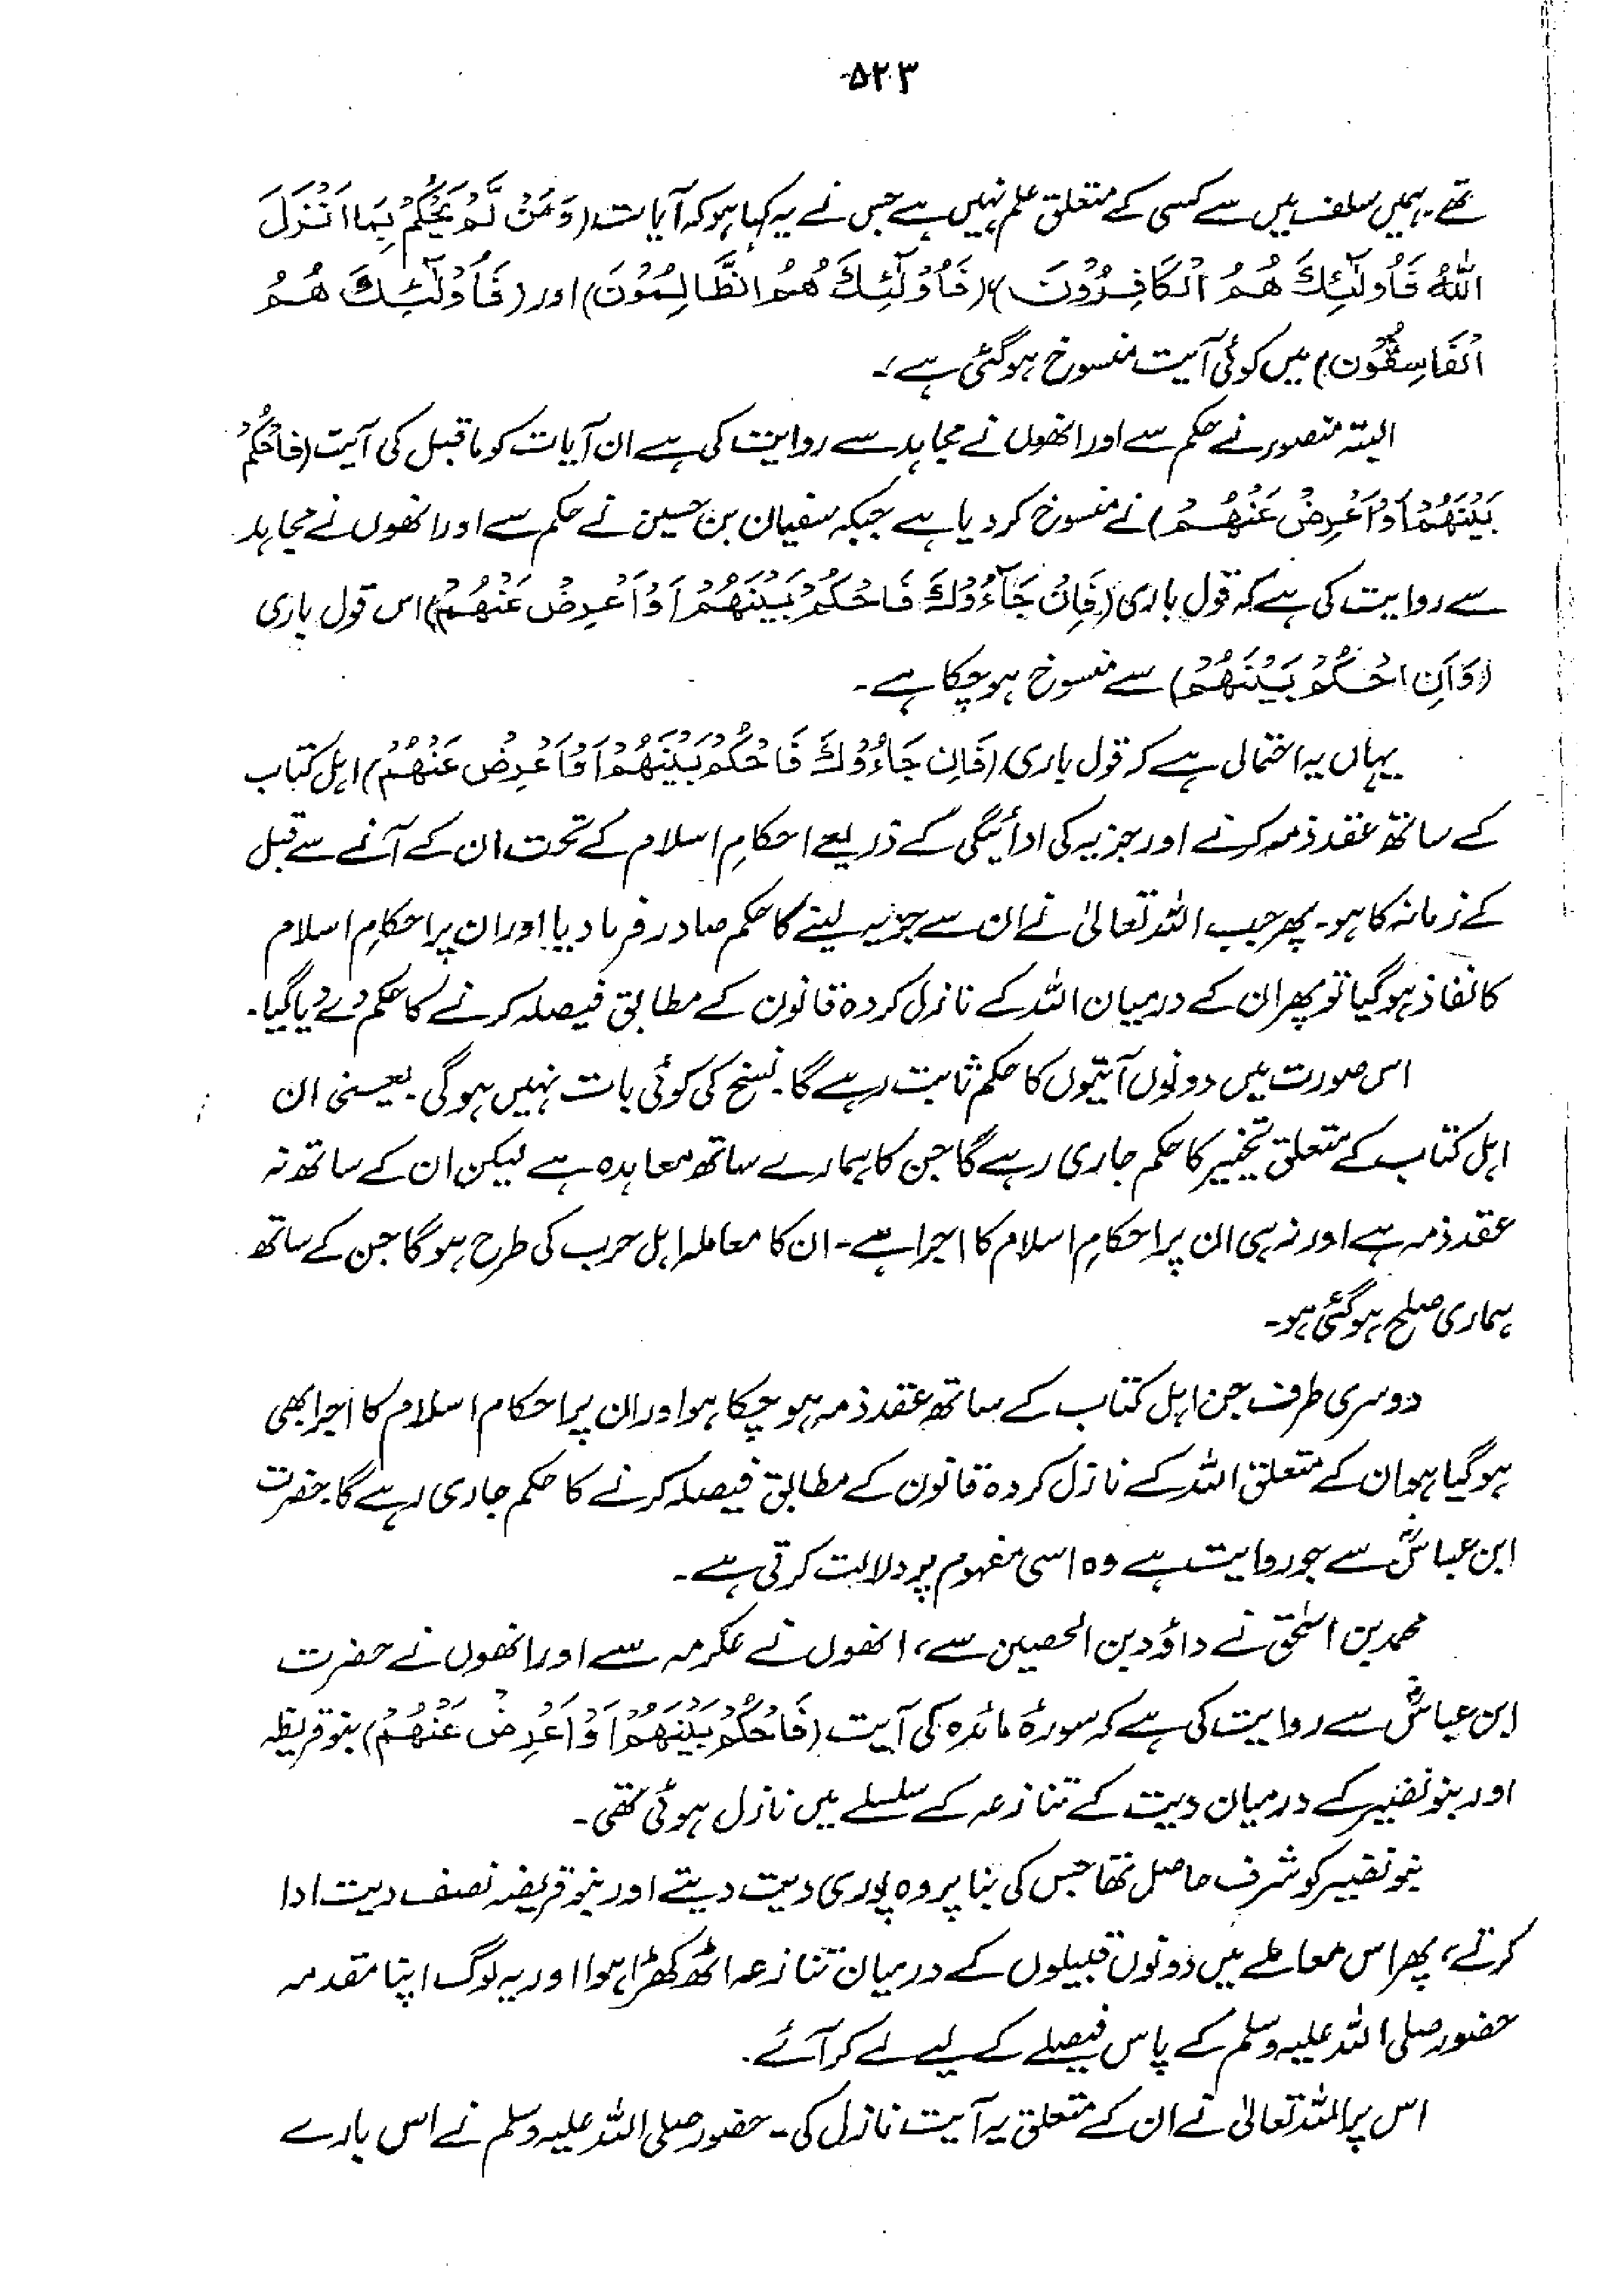 ۵۲۳
تھے۔ ہمیں سلف میں سے کسی کے متعلق علم نہیں ہے جس نے یہ کہا ہو کہ آیات (وَمَنْ لَّمْ يَحْكُمْ بِمَا اَنْزَلَ
اللّٰهُ فَاُولٰٓئِكَ هُمُ الْكَافِرُوْنَ) (فَاُولٰٓئِكَ هُمُ الظَّالِمُوْنَ) اور (فَاُولٰٓئِكَ هُمُ
الْفَاسِقُوْنَ) میں کوئی آیت منسوخ ہوگئی ہے۔
البتہ منصور نے حکم سے اور انھوں نے مجاہد سے روایت کی ہے ان آیات کو ماقبل کی آیت (فَاحْكُمْ
بَيْنَهُمْ اَوْ اَعْرِضْ عَنْهُمْ) نے منسوخ کر دیا ہے جبکہ سفیان بن حسین نے حکم سے اور انھوں نے مجاہد
سے روایت کی ہے کہ قول باری (فَاِنْ جَآءُوْكَ فَاحْكُمْ بَيْنَهُمْ اَوْ اَعْرِضْ عَنْهُمْ) اس قول باری
(وَاَنِ احْكُمْ بَيْنَهُمْ) سے منسوخ ہو چکا ہے۔
یہاں یہ احتمال ہے کہ قول باری (فَاِنْ جَاءُوْكَ فَاحْكُمْ بَيْنَهُمْ اَوْ اَعْرِضْ عَنْهُمْ) اہل کتاب
کے ساتھ عقد ذمہ کرنے اور جزیہ کی ادائیگی کے ذریعے احکامِ اسلام کے تحت ان کے آنے سے قبل
کے زمانہ کا ہو۔ پھر جب اللہ تعالیٰ نے ان سے جزیہ لینے کا حکم صادر فرما دیا اور ان پر احکامِ اسلام
کا نفاذ ہوگیا تو پھر ان کے درمیان اللہ کے نازل کردہ قانون کے مطابق فیصلہ کرنے کا حکم دے دیا گیا۔
اس صورت میں دونوں آیتوں کا حکم ثابت رہے گا۔ نسخ کی کوئی بات نہیں ہوگی۔ یعنی ان
اہل کتاب کے متعلق تخییر کا حکم جاری رہے گا جن کا ہمارے ساتھ معاہدہ ہے لیکن ان کے ساتھ نہ
عقد ذمہ ہے اور نہ ہی ان پر احکامِ اسلام کا اجرا ہے۔ ان کا معاملہ اہل حرب کی طرح ہوگا جن کے ساتھ
ہماری صلح ہوگئی ہو۔
دوسری طرف جن اہل کتاب کے ساتھ عقد ذمہ ہو چکا ہو اور ان پر احکام اسلام کا اجرا بھی
ہوگیا ہو ان کے متعلق اللہ کے نازل کردہ قانون کے مطابق فیصلہ کرنے کا حکم جاری رہے گا۔ حضرت
ابن عباسؓ سے جو روایت ہے وہ اسی مفہوم پر دلالت کرتی ہے۔
محمد بن اسحٰق نے داؤد بن الحصین سے، انھوں نے عکرمہ سے اور انھوں نے حضرت
ابن عباسؓ سے روایت کی ہے کہ سورۂ مائدہ کی آیت (فَاحْكُمْ بَيْنَهُمْ اَوْ اَعْرِضْ عَنْهُمْ) بنو قریظہ
اور بنو نضیر کے درمیان دیت کے تنازعہ کے سلسلے میں نازل ہوئی تھی۔
بنو نضیر کو شرف حاصل تھا جس کی بنا پر وہ پوری دیت دیتے اور بنو قریظہ نصف دیت ادا
کرتے، پھر اس معاملے میں دونوں قبیلوں کے درمیان تنازعہ اٹھ کھڑا ہوا اور یہ لوگ اپنا مقدمہ
حضور صلی اللہ علیہ وسلم کے پاس فیصلے کے لیے لے کر آئے۔
اس پر اللہ تعالیٰ نے ان کے متعلق یہ آیت نازل کی۔ حضور صلی اللہ علیہ وسلم نے اس بارے